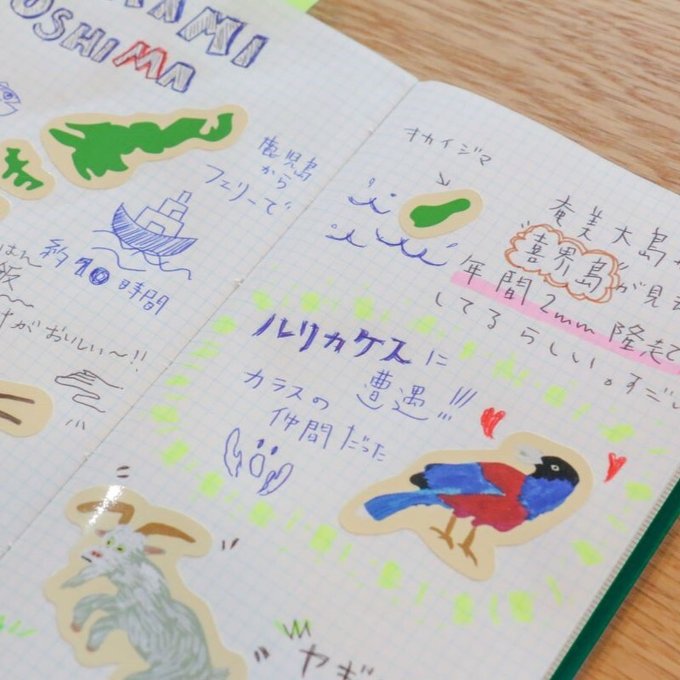 AMI
OSHIMA
鹿児島
から
フェリーで
約10時間
はん
飯
がおいしい〜!!
キカイジマ
奄美大島
"喜界島"が見
年間2mm隆起
してるらしい。すごい
ルリカケスに
遭遇!!!
カラスの
仲間だった
ヤギ